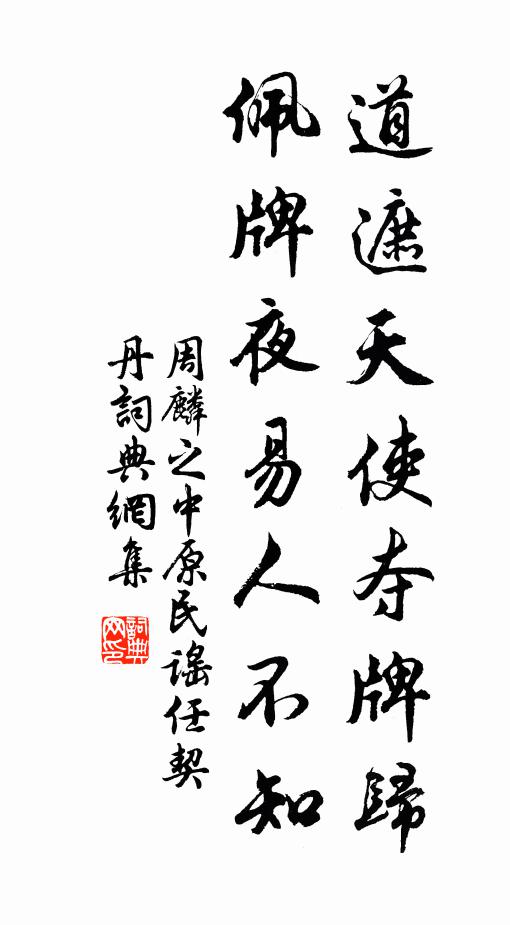 道遮天使夺牌歸
佩牌夜易人不知
周麟之中原民謠任契
丹詞典網集
詞典網印